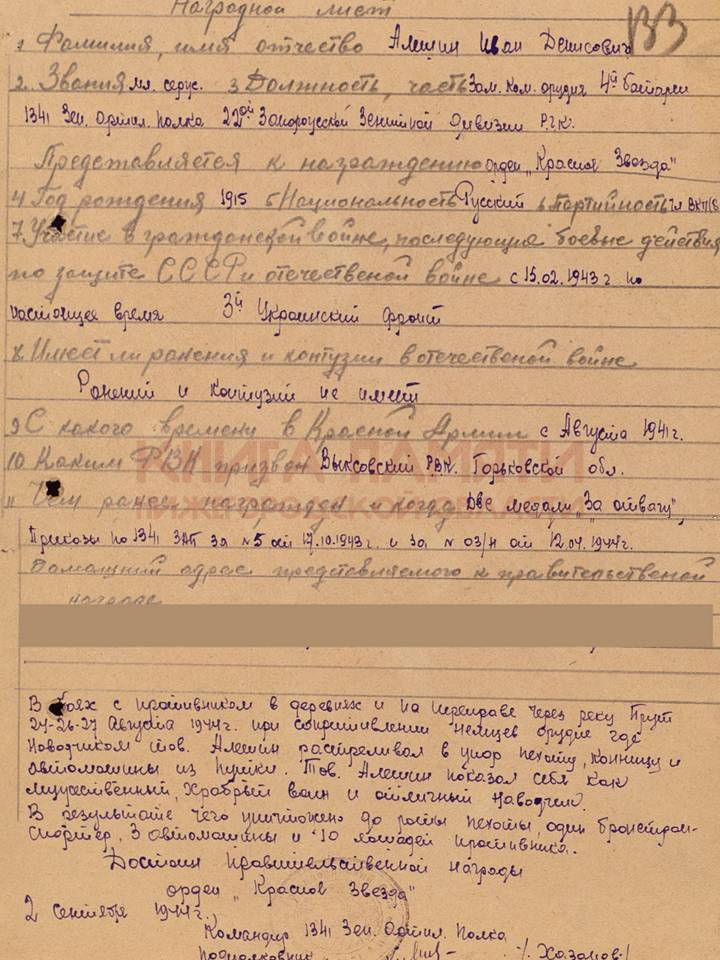 Наградной лист
133
1 Фамилия, имя отчество Алешин Иван Денисович
2. Звания мл. серж. 3 Должность, часть Зам. ком. орудия 4й батареи
1341 Зен. Артил. полка 22ой Запорожской Зенитной Дивизии Р.Г.К.
Представляется к награждению орден „Красной Звезда"
4 Год рождения 1915 5 Национальность Русский 6 Партийность чл ВКП(б
7. Участие в гражданской войне, последующие боевые действия
по защите СССР и отечественой войне с 15.02.1943 г по
настоящее время 3й Украинский фронт
8. Имеет ли ранения и контузии в отечественой войне
Ранений и контузий не имеет
9 С какого времени в Красной Армии с Августа 1941 г.
10 Каким РВК призван Выксовский РВК. Горьковской обл.
11 Чем ранее награжден и когда Две медали „За отвагу",
КНИГА ПАМЯТИ
НИЖЕГОРОДСКОЙ ОБЛАСТИ
Приказы по 1341 ЗАП за № 5 от 17.10.1943 г. и за № 03/н от 12.04.1944 г.
Домашний адрес представляемого к правительственой
награде
В боях с противником в деревнях и на переправе через реку Прут
24-26-27 Августа 1944 г. при сопротивлении немцев орудие где
Наводчиком тов. Алешин расстреливал в упор пехоту, конницу и
автомашины из пушки. Тов. Алешин показал себя как
мужественный, храбрый воин и отличный наводчик.
В результате чего уничтожено до роты пехоты, один бронетран-
спортер, 3 автомашины и 10 лошадей противника.
Достоин Правительственной Награды
орден „Красной Звезда"
2 сентября 1944 г.
Командир 1341 Зен. Артил. Полка
подполковник /Хазанов/